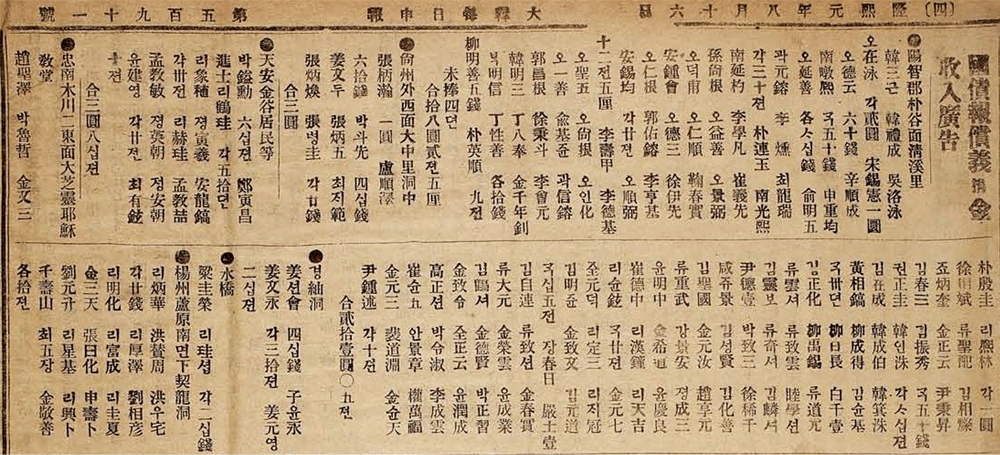 (四) 隆熙元年八月十六日 大韓每日申報 第五百九十一號
國債報償義捐金
收入廣告
●陽智郡朴谷面淸溪里
韓三근 韓禮成 吳洛泳
오在泳 각貳圜 宋錫憲一圜
오德云 六十錢 辛順成
南暾熙 국五十錢 申重均
오延善 各ㅅ십錢 兪明五
곽元鎔 李燻 최龍瑞
각三十젼 朴連玉 南光熙
南延杓 李學凡 崔義先
孫尙根 오益善 오景弼
오덕甫 오仁順 鞠春實
안鍾會 오德三 徐伊先
오仁根 郭佑鎔 李亨基
安錫均 각廿젼 오順弼
十二젼五厘 李壽甲 李德基
오聖五 오尙根 오인化
오一善 兪基준 곽信鎔
郭昌根 徐秉斗 李會元
韓明三 丁八奉 金千年釗
북明三 丁性善 各拾錢
柳明善五錢 朴英順 九젼
未捧四면
合拾八圜貳젼五厘
●尙州外西面大中里洞中
張柄瀚 一圜 盧順澤
六拾錢 박斗先 四십錢
姜文두 張炳五 최지範
張炳煥 張령圭 각廿錢
合三圜
●天安金谷居民等
박鎰勳 六십젼 鄭寅昌
進士리鶴珪 각五拾면
리象稙 졍寅羲 安龍鎬
각卅젼 리赫珪 孟敎喆
孟敎敏 졍英朝 정安朝
윤建영 각廿젼 최有鉉
젼
合三圜八십젼
●忠南木川二東面大芝靈耶穌
敎堂
趙聖澤 박魯哲 金又三
朴殷圭 리熙林 각一圜
徐相斌 류聖配 김相
죠炳奎 金正云 尹秉昇
김春三 김振秀 국五十錢
권正圭 韓인洙 각ㅅ십젼
김在成 韓成伯 韓箕洙
黃相鎬 柳成得 김윤基
국卅면 柳日長 白千壹
김正化 柳禹錫 류道元
류雲셔 류致雲 睦學션
김靈보 류奇셔 김麟셔
尹德壹 박致三 徐稀千
咸允존 김성賢 김化善
김聖國 金元汝 趙享元
류重武 강景安 졍成三
윤明中 金希道 윤慶良
崔德中 리漢鍾 리天吉
리슌鉉 국廿젼 金元七
全元덕 리定三 리지冠
김明윤 金致文 김元道
국십五젼 장春日 嚴士壹
김自連 류致덕 金春實
류大元 金榮雲 윤成業
김鶴셔 金德賢 박正習
金致令 全正云 윤潤成
高正션 박令淑 李成雲
崔윤五 안景章 權萬福
金元三 裴道淵 金金天
尹鍾述 각十젼
合貳拾壹圜○五젼
●경紬洞
姜션會 四십錢 子윤永
姜文永 각三拾젼 姜元영
二십젼
●水橋
梁圭榮 리珪성 각二십錢
●楊州蘆原南면下契龍洞
리炳華 洪贊周 洪우宅
각廿젼 리厚榮 劉相彦
리明化 리富成 리圭夏
金三天 張日化 申壽卜
劉元廾 리星基 리興卜
千壽山 최五장 金敬善
각拾젼